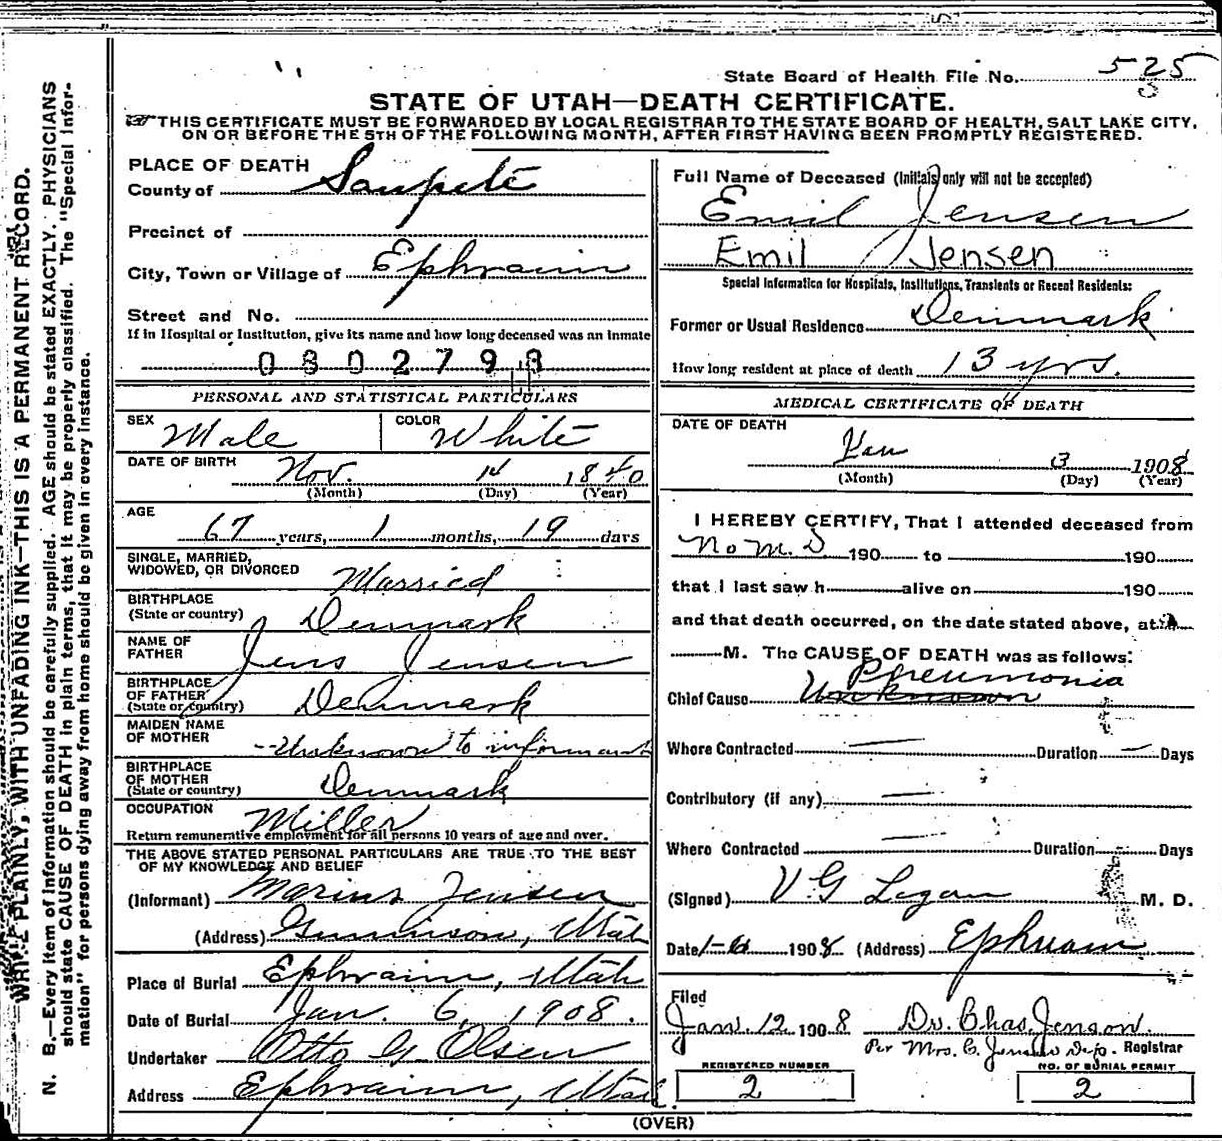 State Board of Health File No. 525
3
STATE OF UTAH—DEATH CERTIFICATE.
THIS CERTIFICATE MUST BE FORWARDED BY LOCAL REGISTRAR TO THE STATE BOARD OF HEALTH, SALT LAKE CITY,
ON OR BEFORE THE 5TH OF THE FOLLOWING MONTH, AFTER FIRST HAVING BEEN PROMPTLY REGISTERED.
WRITE PLAINLY, WITH UNFADING INK—THIS IS A PERMANENT RECORD.
N. B.—Every item of information should be carefully supplied. AGE should be stated EXACTLY. PHYSICIANS
should state CAUSE OF DEATH in plain terms, that it may be properly classified. The "Special Infor-
mation" for persons dying away from home should be given in every instance.
PLACE OF DEATH
County of Sanpete
Precinct of
City, Town or Village of Ephraim
Street and No.
If in Hospital or Institution, give its name and how long deceased was an inmate
0302793
PERSONAL AND STATISTICAL PARTICULARS
SEX Male COLOR White
DATE OF BIRTH Nov. 14 1840
(Month) (Day) (Year)
AGE
67 years, 1 months, 19 days
SINGLE, MARRIED,
WIDOWED, OR DIVORCED Married
BIRTHPLACE
(State or country) Denmark
NAME OF
FATHER Jens Jensen
BIRTHPLACE
OF FATHER
(State or country) Denmark
MAIDEN NAME
OF MOTHER --Unknown to informant
BIRTHPLACE
OF MOTHER
(State or country) Denmark
OCCUPATION Miller
Return remunerative employment for all persons 10 years of age and over.
THE ABOVE STATED PERSONAL PARTICULARS ARE TRUE TO THE BEST
OF MY KNOWLEDGE AND BELIEF
(Informant) Marius Jensen
(Address) Gunnison, Utah
Place of Burial Ephraim, Utah
Date of Burial Jan. 6, 1908.
Undertaker Otto G. Olsen
Address Ephraim, Utah.
Full Name of Deceased (Initials only will not be accepted)
Emil Jensen
Emil Jensen
Special Information for Hospitals, Institutions, Transients or Recent Residents:
Former or Usual Residence Denmark
How long resident at place of death 13 yrs.
MEDICAL CERTIFICATE OF DEATH
DATE OF DEATH
Jan 3 1908
(Month) (Day) (Year)
I HEREBY CERTIFY, That I attended deceased from
No M. D 190 to 190
that I last saw h alive on 190
and that death occurred, on the date stated above, at
M. The CAUSE OF DEATH was as follows:
Pneumonia
Chief Cause Unknown
Where Contracted — Duration — Days
Contributory (if any) —
Where Contracted — Duration Days
(Signed) V. G Logan M. D.
Date 1-6 1908 (Address) Ephraim
Filed
Jan. 12 1908 Dr. Chas. Jenson.
Per Mrs. C. Jenson Dep. Registrar
REGISTERED NUMBER NO. OF BURIAL PERMIT
2 2
(OVER)